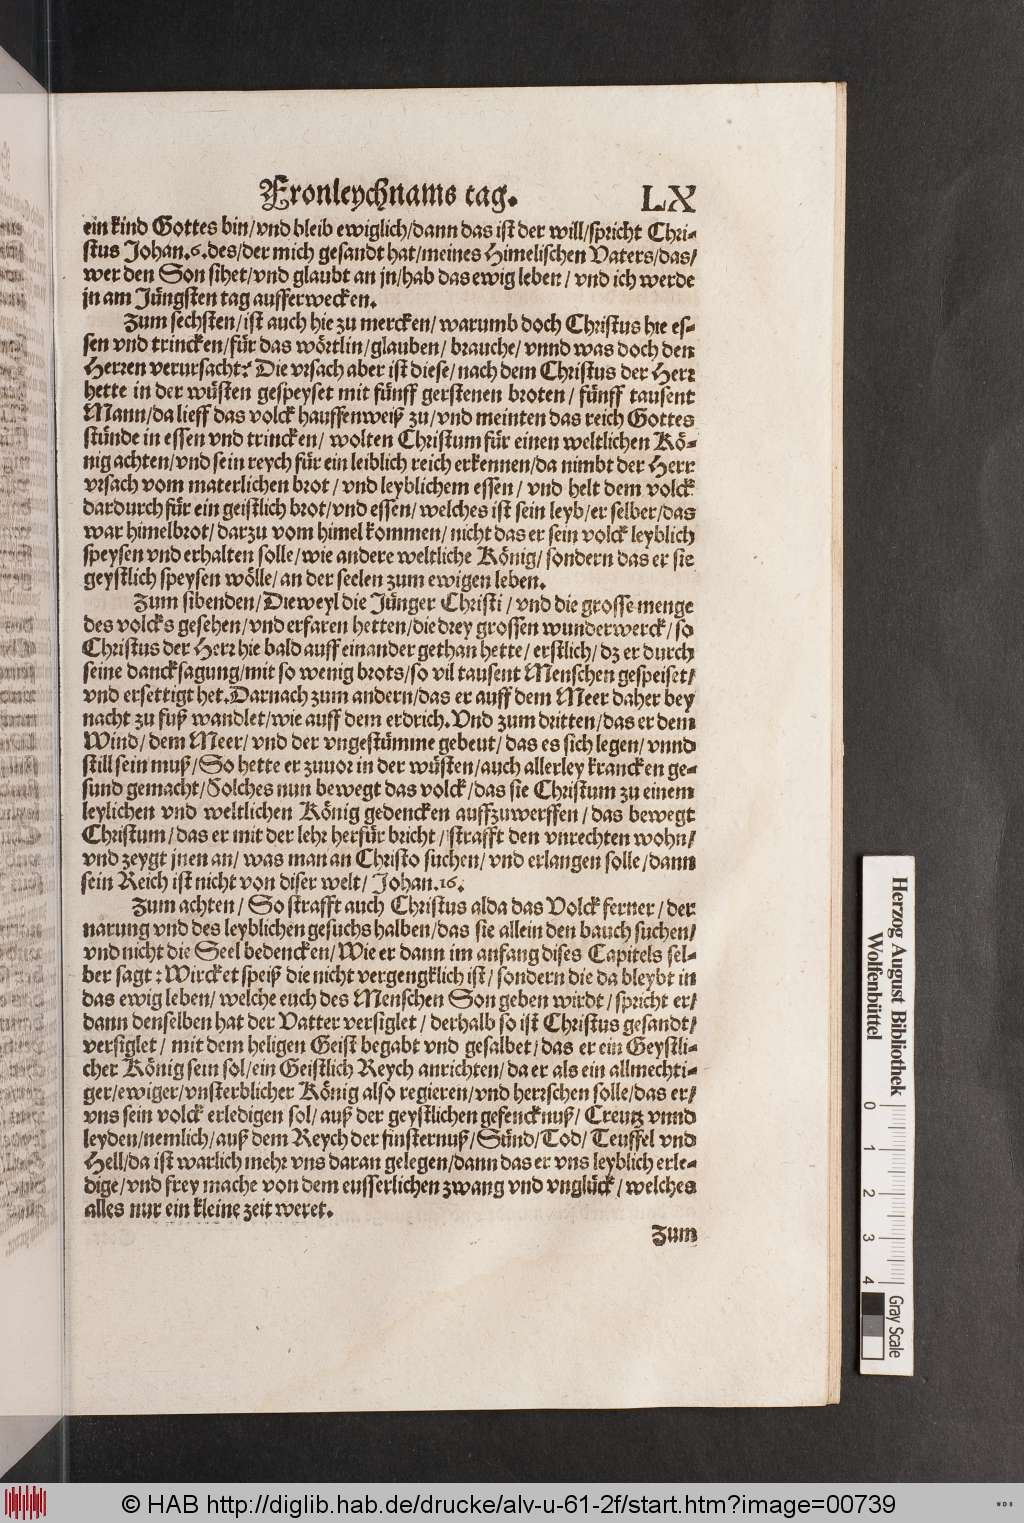 Fronleychnams tag. LX
ein kind Gottes bin/vnd bleib ewiglich/dann das ist der will/spricht Chri-
stus Johan.6.des/der mich gesandt hat/meines Himelischen Vaters/das/
wer den Son sihet/vnd glaubt an jn/hab das ewig leben/ vnd ich werde
jn am Jüngsten tag aufferwecken.
Zum sechsten/ist auch hie zu mercken/warumb doch Christus hie es-
sen vnd trincken/für das wörtlin/glauben/ brauche/vnnd was doch den
Herren verursacht? Die vrsach aber ist diese/nach dem Christus der Herr
hette in der wüsten gespeyset mit fünff gerstenen broten/ fünff tausent
Mann/da lieff das volck hauffenweiß zu/vnd meinten das reich Gottes
stünde in essen vnd trincken/ wolten Christum für einen weltlichen Kö-
nig achten/vnd sein reych für ein leiblich reich erkennen/da nimbt der Herr
vrsach vom materlichen brot/ vnd leyblichem essen/ vnd helt dem volck
dardurch für ein geistlich brot/vnd essen/welches ist sein leyb/er selber/das
war himelbrot/darzu vom himel kommen/nicht das er sein volck leyblich
speysen vnd erhalten solle/wie andere weltliche König/sondern das er sie
geystlich speysen wölle/an der seelen zum ewigen leben.
Zum sibenden/Dieweyl die Jünger Christi/ vnd die grosse menge
des volcks gesehen/vnd erfaren hetten/die drey grossen wunderwerck/so
Christus der Herr hie bald auff einander gethan hette/ erstlich/dz er durch
seine dancksagung/mit so wenig brots/so vil tausent Menschen gespeiset/
vnd ersettigt het.Darnach zum andern/das er auff dem Meer daher bey
nacht zu fuß wandlet/wie auff dem erdrich.Vnd zum dritten/das er dem
Wind/dem Meer/vnd der vngestümme gebeut/das es sich legen/vnnd
still sein muß/So hette er zuuor in der wüsten/auch allerley krancken ge-
sund gemacht/Solches nun bewegt das volck/das sie Christum zu einem
leylichen vnd weltlichen König gedencken auffzuwerffen/das bewegt
Christum/das er mit der lehr herfür bricht/strafft den vnrechten wohn/
vnd zeygt jnen an/was man an Christo suchen/vnd erlangen solle/dann
sein Reich ist nicht von diser welt/ Johan.16.
Zum achten/ So strafft auch Christus alda das Volck ferner/der
narung vnd des leyblichen gesuchs halben/das sie allein den bauch suchen/
vnd nicht die Seel bedencken/Wie er dann im anfang dises Capitels sel-
ber sagt: Wircket speiß die nicht vergengklich ist/sondern die da bleybt in
das ewig leben/ welche euch des Menschen Son geben wirdt/spricht er/
dann denselben hat der Vatter versiglet/ derhalb so ist Christus gesandt/
versiglet/ mit dem heligen Geist begabt vnd gesalbet/das er ein Geystli-
cher König sein sol/ein Geistlich Reych anrichten/da er als ein allmechti-
ger/ewiger/vnsterblicher König also regieren/vnd herrschen solle/das er/
vns sein volck erledigen sol/auß der geystlichen gefencknuß/Creutz vnnd
leyden/nemlich/auß dem Reych der finsternuß/Sünd/Tod/Teuffel vnd
Hell/da ist warlich mehr vns daran gelegen/dann das er vns leyblich erle-
dige/vnd frey mache von dem eusserlichen zwang vnd vnglück/welches
alles nur ein kleine zeit weret.
Zum
Herzog August Bibliothek
Wolfenbüttel
0 1 2 3 4
Gray Scale
© HAB http://diglib.hab.de/drucke/alv-u-61-2f/start.htm?image=00739